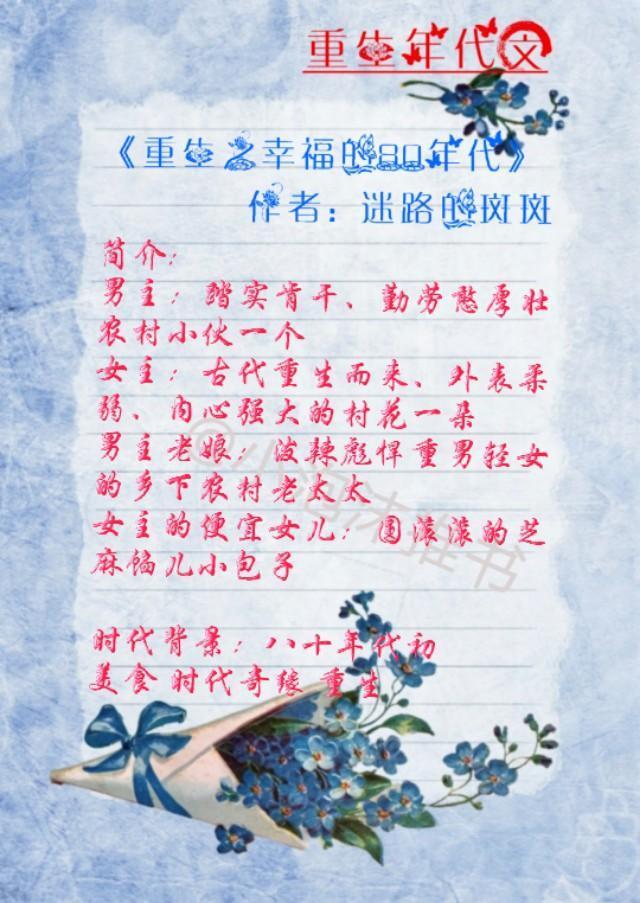 重生年代文
《重生之幸福的80年代》
作者：迷路的斑斑
简介：
男主：踏实肯干、勤劳憨厚壮
农村小伙一个
女主：古代重生而来、外表柔
弱、内心强大的村花一朵
男主老娘：泼辣彪悍重男轻女
的乡下农村老太太
女主的便宜女儿：圆滚滚的芝
麻馅儿小包子
时代背景：八十年代初
美食 时代奇缘 重生
@小泡沫推书